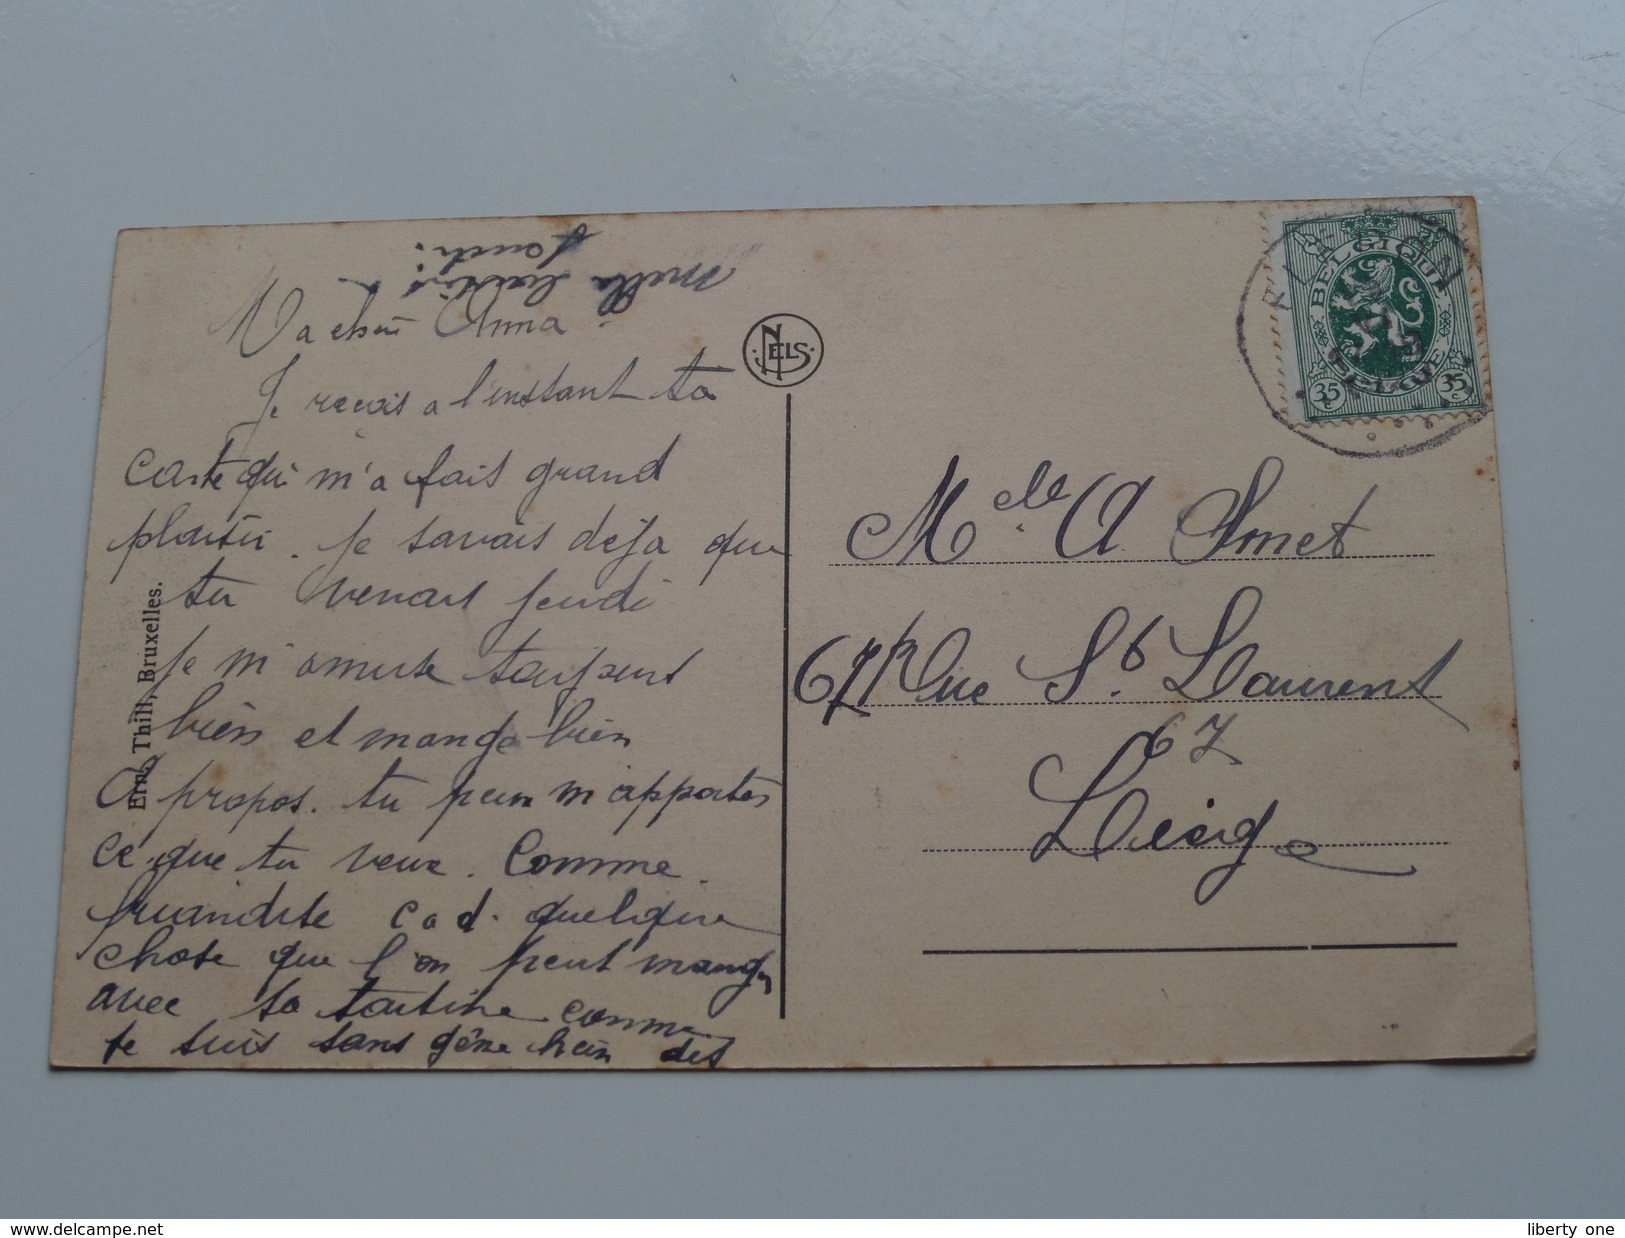 Ma chère Anna
Je reçois a l'instant ta
carte qui m'a fais grand
plaisir. Je savais déja que
tu venait jeudi
Je m'amuse
bien et mange bien
A propos. tu peux m'apporter
ce que tu veux. Comme
friandise c a d. quelque
chose que l'on peut manger
avec sa tartine comme
je suis sans gêne hein dis
Mille
NELS
Ern. Thill, Bruxelles.
BELGIQUE
BELGIE
35 c 35 c
Melle A Smet
67 Rue St. Laurent
67
Liège
delcampe.net
liberty_one